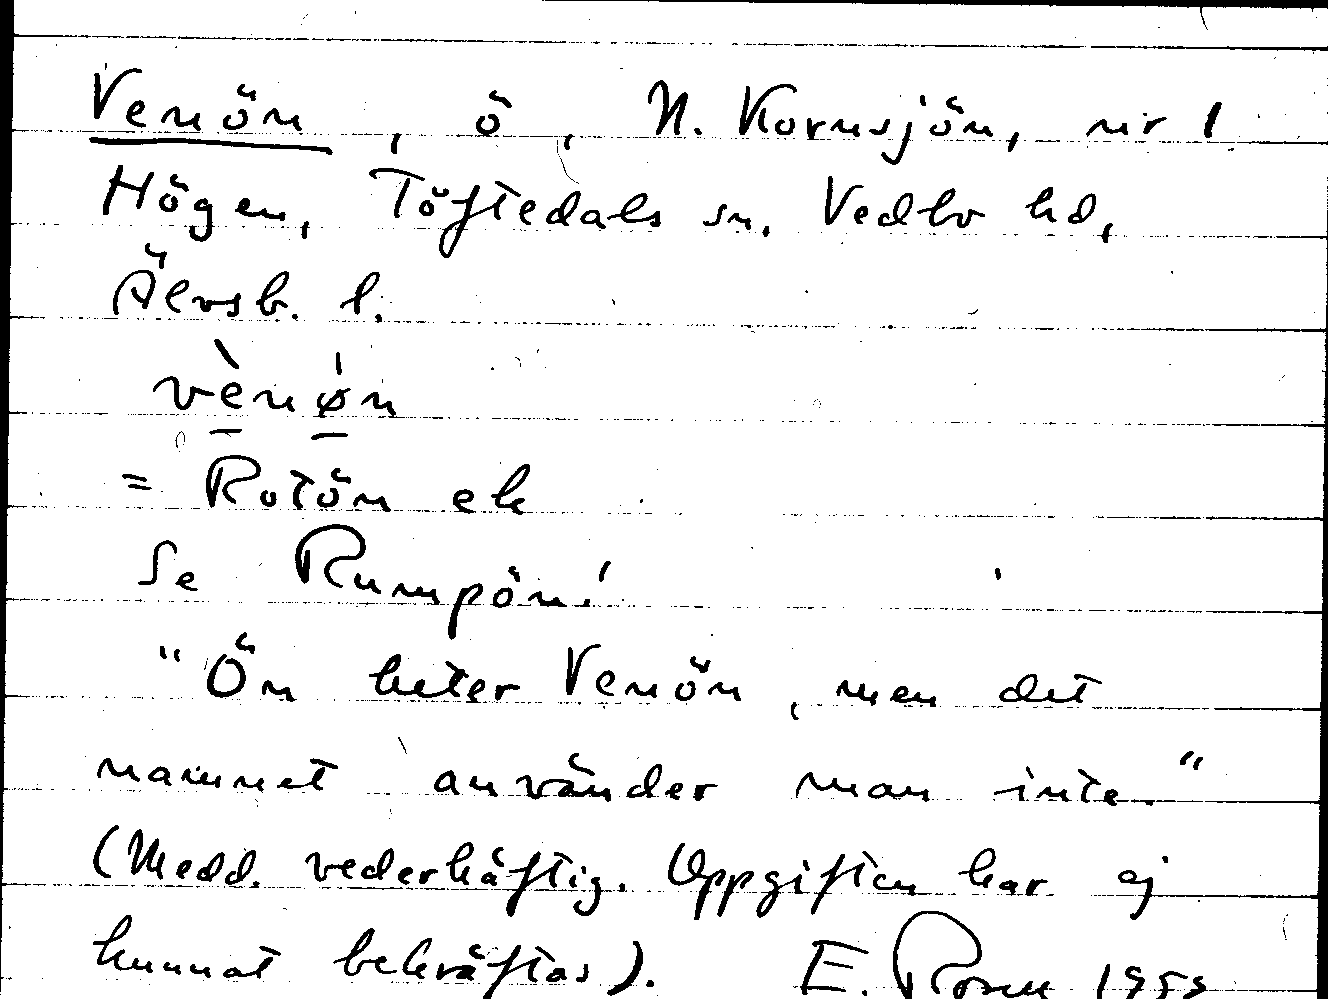 Venön, ö, N. Kornsjön, nr 1
Högen, Töftedals sn. Vedbo hd,
Älvsb. l.
vènøn
= Rotön ek
Se Rumpön!
"Ön heter Venön, men det
namnet använder man inte."
(Medd. vederhäftig. Uppgiften har ej
kunnat bekräftas). E. Rosen